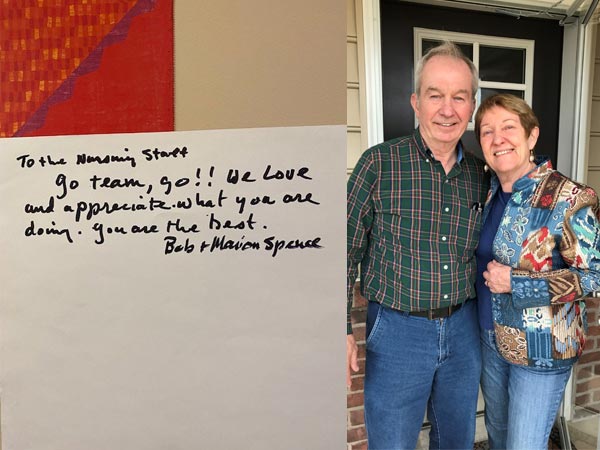 To the Nursing Staff
Go team, go!! We Love
and appreciate what you are
doing. You are the best.
Bob + Marion Spence